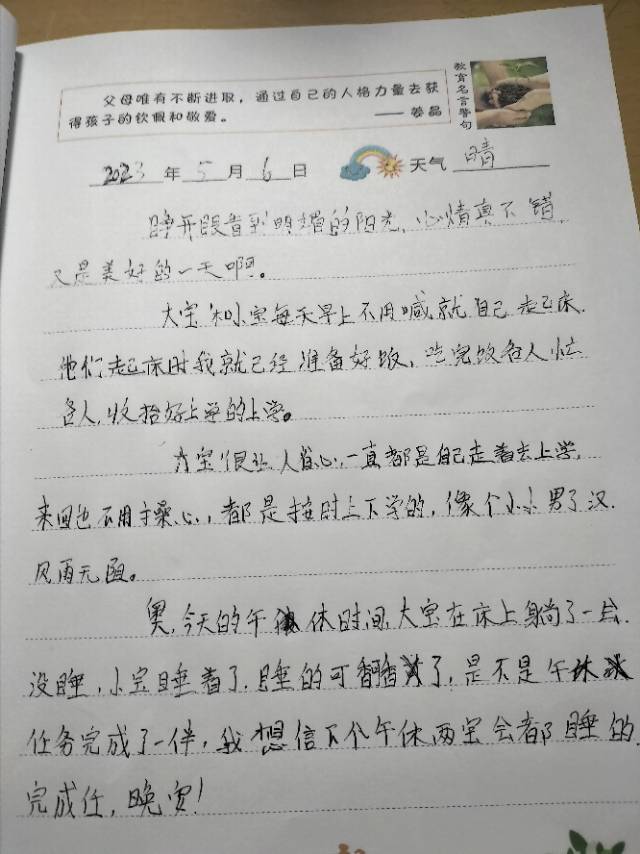 父母唯有不断进取，通过自己的人格力量去获
得孩子的钦佩和敬爱。 —— 晏晶
教育名言警句
2023年5月6日 天气 晴
睁开眼看到明媚的阳光，心情真不错，
又是美好的一天啊。
大宝和小宝每天早上不用喊就自己起床，
他们起床时我就已经准备好饭，吃完饭各人忙
各人，收拾好上学的上学。
大宝很让人省心，一直都是自己走着去上学，
来回也不用操心，都是按时上下学的，像个小小男子汉，
风雨无阻。
奥，今天的午休时间，大宝在床上躺了一会，
没睡，小宝睡着了，睡的可香了，是不是午休
任务完成了一伴，我想信下个午休两宝会都睡的，
完成任，晚安！